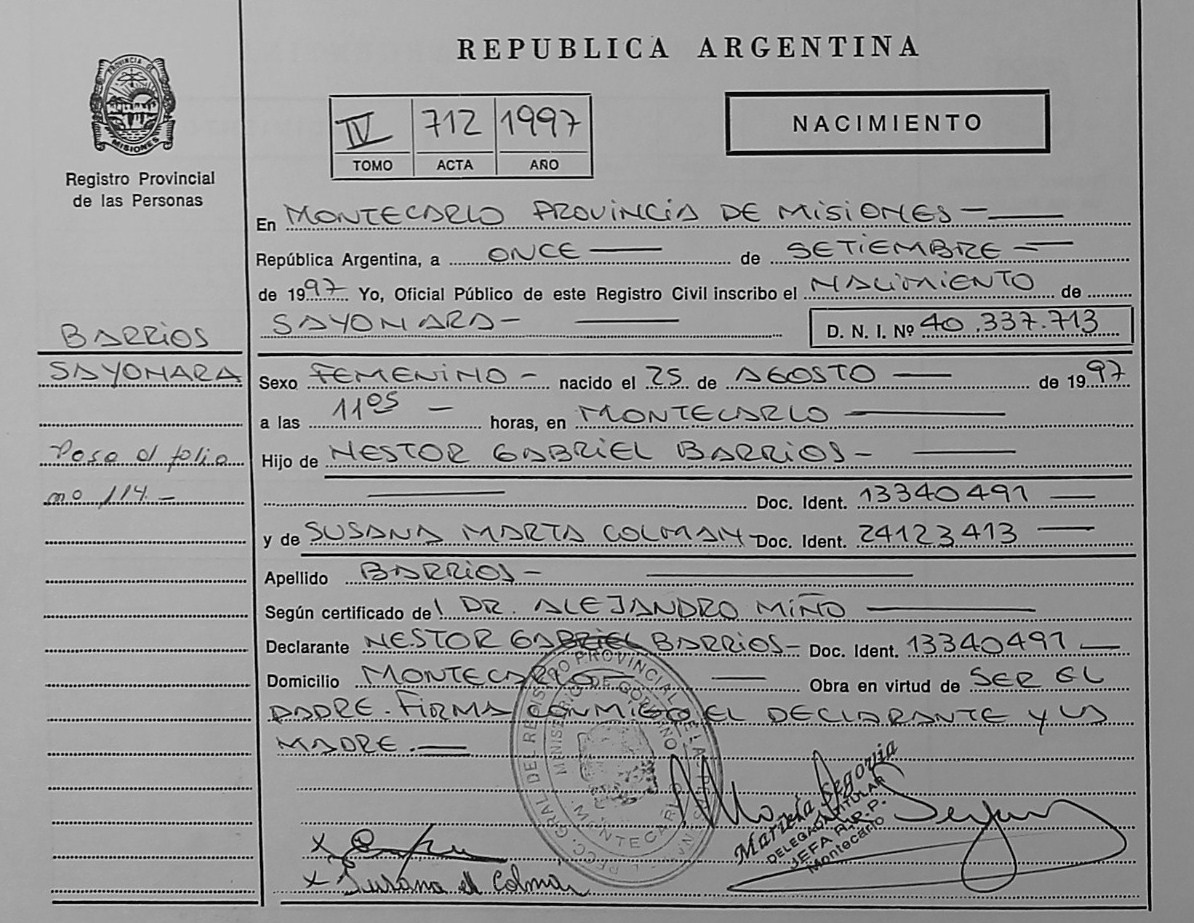 REPUBLICA ARGENTINA
PROVINCIA DE
MISIONES
Registro Provincial
de las Personas
IV 712 1997
TOMO ACTA AÑO
NACIMIENTO
En MONTECARLO PROVINCIA DE MISIONES —
República Argentina, a ONCE — de SETIEMBRE —
de 1997 Yo, Oficial Público de este Registro Civil inscribo el NACIMIENTO de
SAYONARA — D. N. I. Nº 40.337.713
BARRIOS
SAYONARA
Sexo FEMENINO - nacido el 25 de AGOSTO — de 1997
a las 11 05 — horas, en MONTECARLO —
Pasa al folio
nº 114 -
Hijo de NESTOR GABRIEL BARRIOS —
— Doc. Ident. 13340491 —
y de SUSANA MARTA COLMAN - Doc. Ident. 24123413 —
Apellido BARRIOS —
Según certificado del DR. ALEJANDRO MIÑO —
Declarante NESTOR GABRIEL BARRIOS - Doc. Ident. 13340491 —
Domicilio MONTECARLO — Obra en virtud de SER EL
PADRE. FIRMA CONMIGO EL DECLARANTE Y LA
MADRE. —
GRAL DEL REGISTRO PROVINCIAL DE LA
MINISTERIO DE GOBIERNO
MONTECARLO
Mariela Segovia
DELEGADA TITULAR
JEFA R.P.P.
Montecarlo
x
x Susana M Colmán